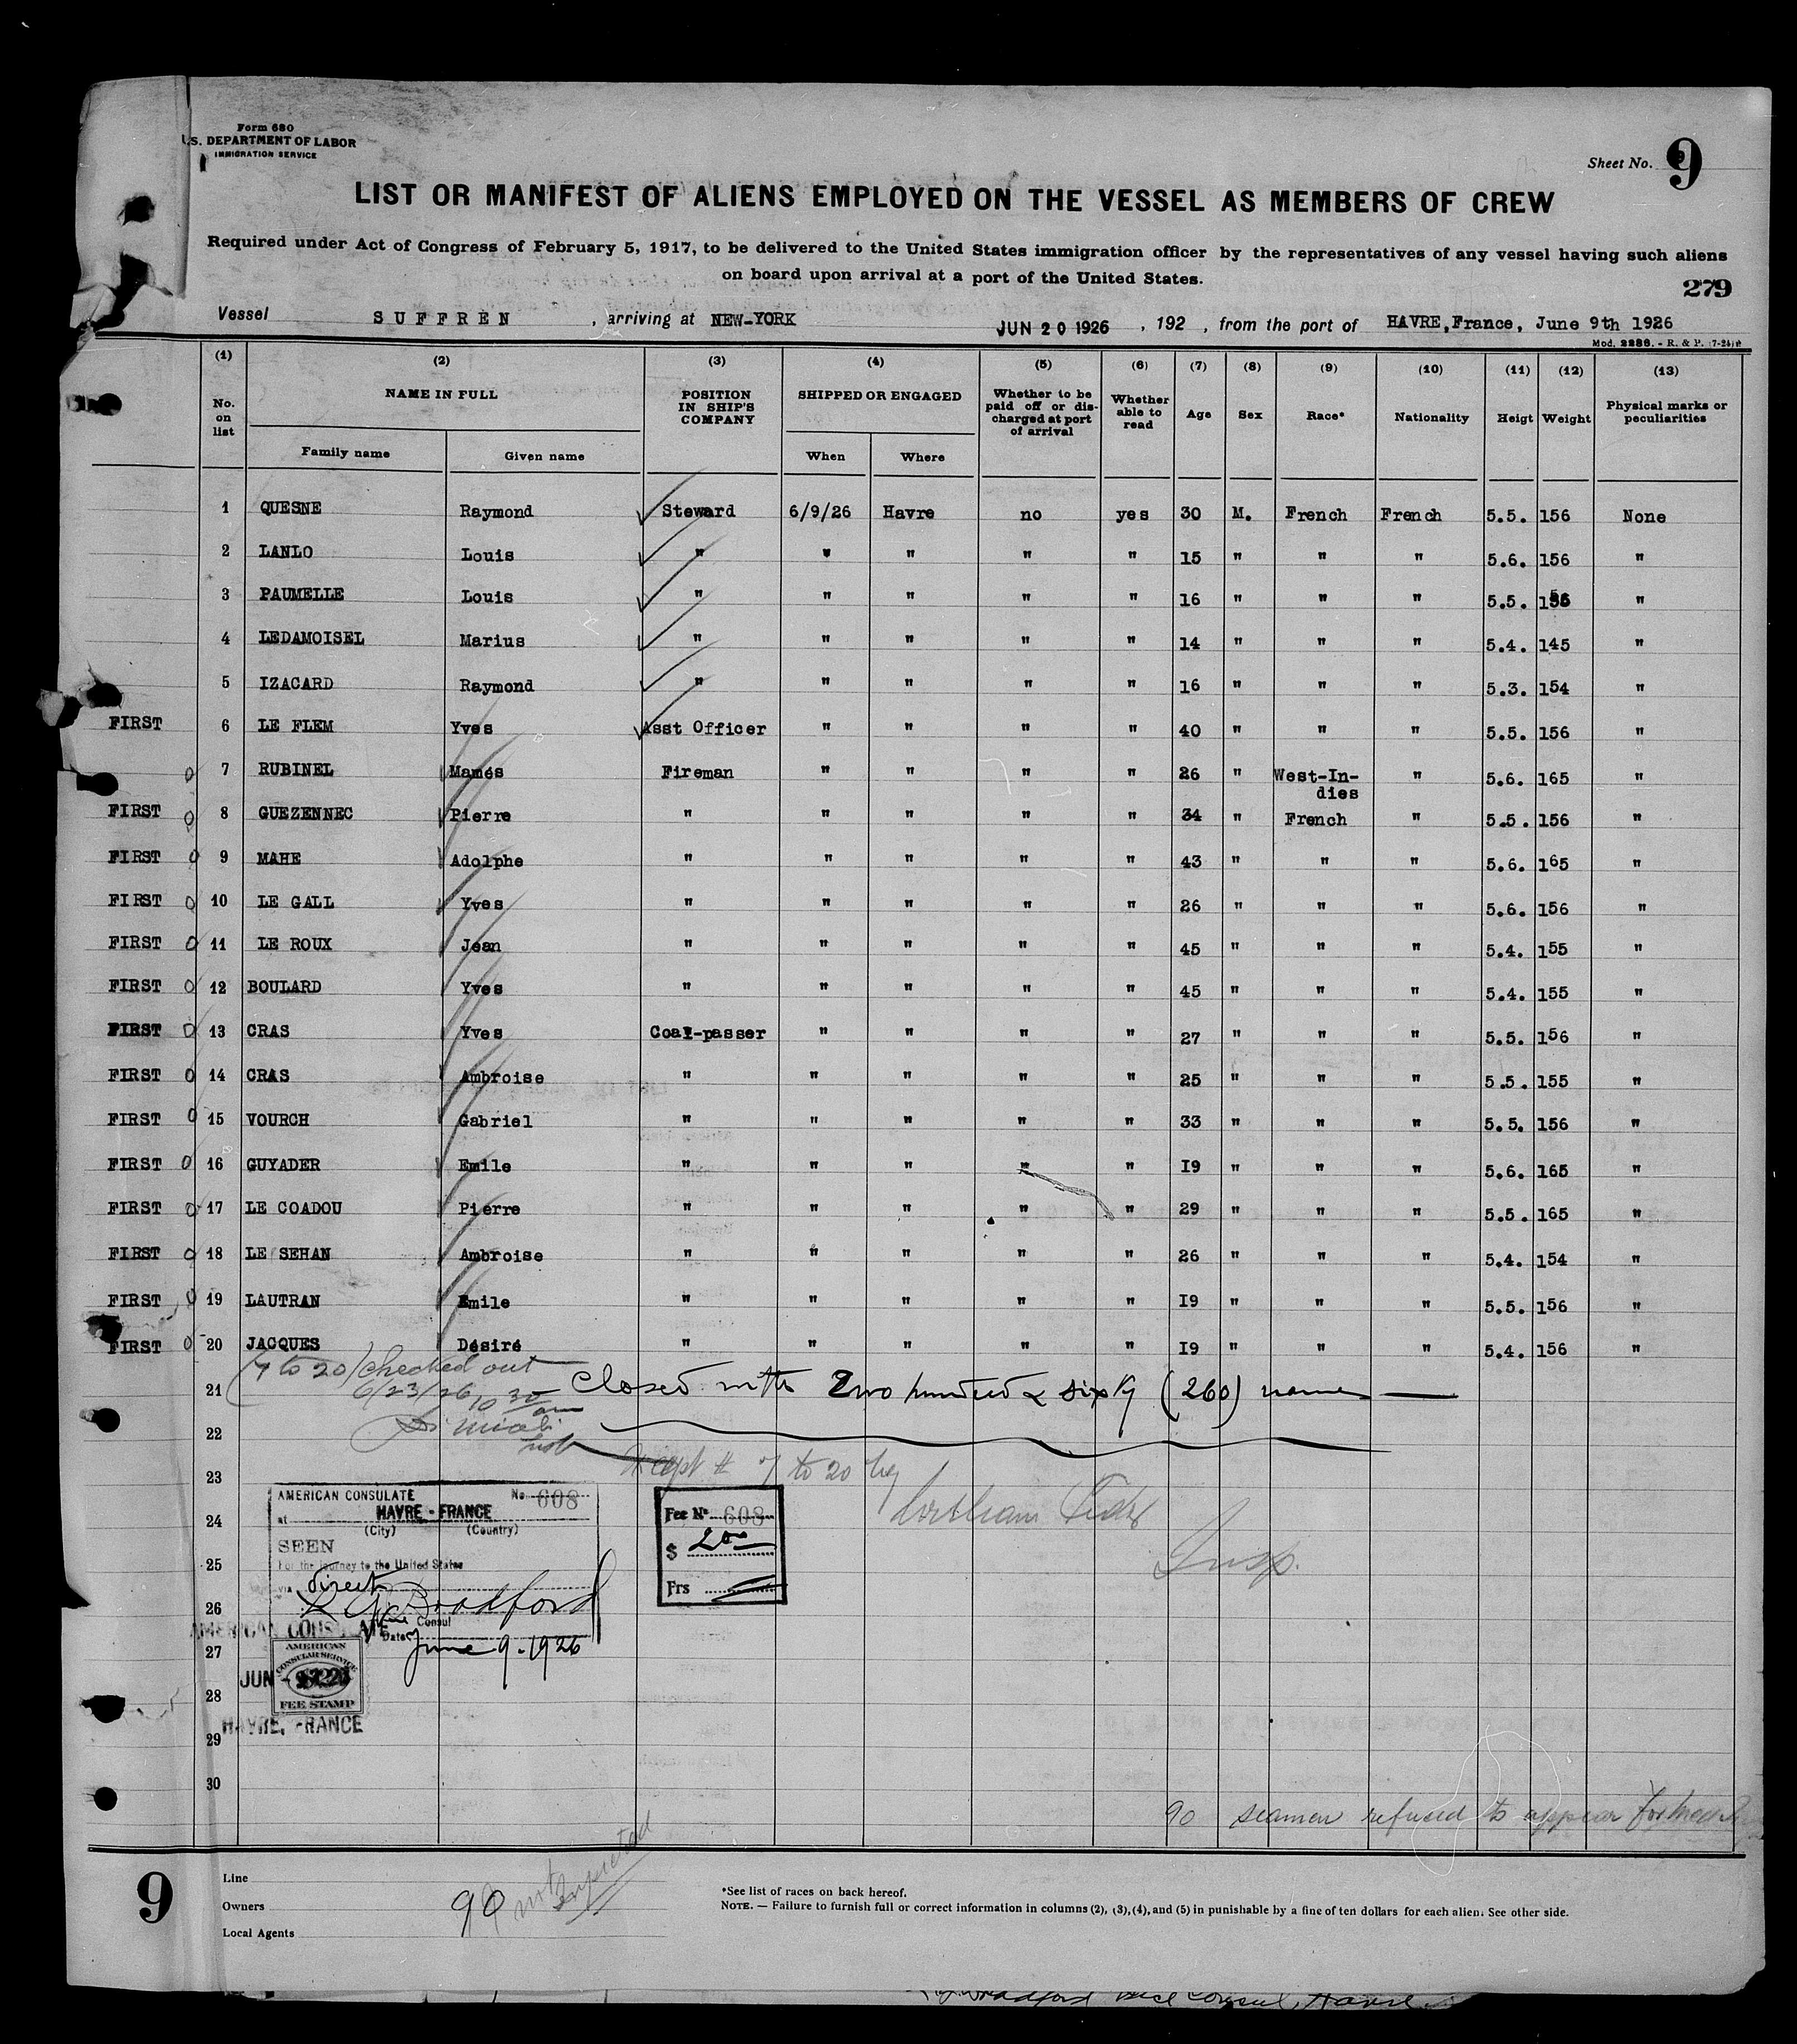 Form 680
U.S. DEPARTMENT OF LABOR
IMMIGRATION SERVICE
Sheet No. 9
LIST OR MANIFEST OF ALIENS EMPLOYED ON THE VESSEL AS MEMBERS OF CREW
Required under Act of Congress of February 5, 1917, to be delivered to the United States immigration officer by the representatives of any vessel having such aliens
on board upon arrival at a port of the United States.
279
Vessel SUFFREN , arriving at NEW-YORK JUN 20 1926 , 192 , from the port of HAVRE, France, June 9th 1926
Mod. 2286. - R. & P. (7-24)
(1) (2) (3) (4) (5) (6) (7) (8) (9) (10) (11) (12) (13)
No. on list NAME IN FULL POSITION IN SHIP'S COMPANY SHIPPED OR ENGAGED Whether to be paid off or discharged at port of arrival Whether able to read Age Sex Race* Nationality Heigt Weight Physical marks or peculiarities
Family name Given name When Where
1 QUESNE Raymond Steward 6/9/26 Havre no yes 30 M. French French 5.5. 156 None
2 LANLO Louis " " " " " 15 " " " 5.6. 156 "
3 PAUMELLE Louis " " " " " 16 " " " 5.5. 156 "
4 LEDAMOISEL Marius " " " " " 14 " " " 5.4. 145 "
5 IZACARD Raymond " " " " " 16 " " " 5.3. 154 "
FIRST 6 LE FLEM Yves Asst Officer " " " " 40 " " " 5.5. 156 "
7 RUBINEL Mamés Fireman " " " " 26 " West-In-dies " 5.6. 165 "
FIRST 8 GUEZENNEC Pierre " " " " " 34 " French " 5.5. 156 "
FIRST 9 MAHE Adolphe " " " " " 43 " " " 5.6. 165 "
FIRST 10 LE GALL Yves " " " " " 26 " " " 5.6. 156 "
FIRST 11 LE ROUX Jean " " " " " 45 " " " 5.4. 155 "
FIRST 12 BOULARD Yves " " " " " 45 " " " 5.4. 155 "
FIRST 13 CRAS Yves Coal-passer " " " " 27 " " " 5.5. 156 "
FIRST 14 CRAS Ambroise " " " " " 25 " " " 5.5. 155 "
FIRST 15 VOURCH Gabriel " " " " " 33 " " " 5.5. 156 "
FIRST 16 GUYADER Emile " " " " " I9 " " " 5.6. 165 "
FIRST 17 LE COADOU Pierre " " " " " 29 " " " 5.5. 165 "
FIRST 18 LE SEHAN Ambroise " " " " " 26 " " " 5.4. 154 "
FIRST 19 LAUTRAN Emile " " " " " I9 " " " 5.5. 156 "
FIRST 20 JACQUES Désiré " " " " " I9 " " " 5.4. 156 "
(7 to 20) checked out
6/23/26 10 30 am
21 Closed with Two hundred & sixty (260) names
22
Insp
Except # 7 to 20 by
23
AMERICAN CONSULATE No 608
at HAVRE - FRANCE
(City) (Country)
24
SEEN
For the journey to the United States
25
via direct
Fee No 608
$ 2.00
Frs
Insp.
26
Bradford
Vice Consul
AMERICAN CONSULATE
Date June 9 - 1926
27
AMERICAN CONSULAR SERVICE
FEE STAMP
JUN
28
HAVRE, FRANCE
29
30
90 seamen refused to appear for
9
Line
Owners
Local Agents
90 not inspected
*See list of races on back hereof.
NOTE. — Failure to furnish full or correct information in columns (2), (3), (4), and (5) in punishable by a fine of ten dollars for each alien. See other side.
Bradford Vice Consul, Havre